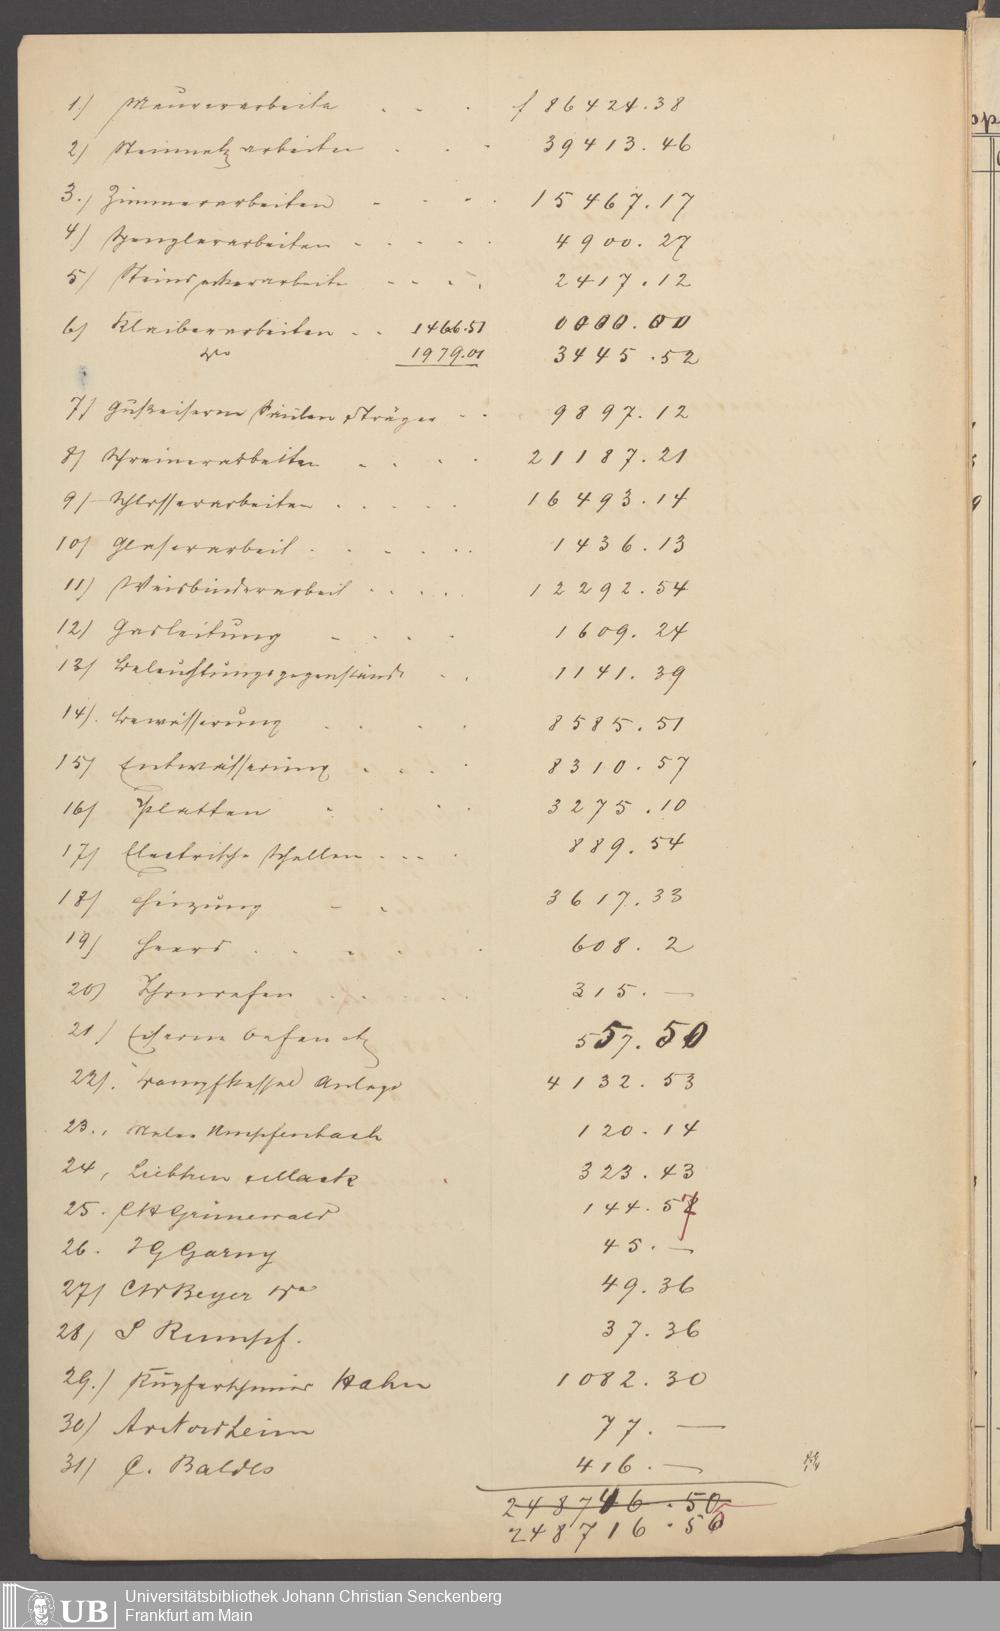 1.) Maurerarbeiten . . . f 86424.38
2) Steinmetzarbeiten . . . 39413.46
3.) Zimmerarbeiten . . . . 15467.17
4) Spenglerarbeiten . . . . . 4900.27
5) Steindeckerarbeiten . . . . 2417.12
6) Kleiberarbeiten . . 1466.51 0000.00
do 1979.01 3445.52
7) Gußeiserne Säulen & Träger . . 9897.12
8) Schreinerarbeiten . . . . 21187.21
9) Schlosserarbeiten . . . . . 16493.14
10) Glaserarbeit . . . . . . 1436.13
11) Weisbinderarbeit . . . . . 12292.54
12) Gasleitung . . . . 1609.24
13) Beleuchtungsgegenstände . . 1141.39
14). Bewässerung . . . . 8585.51
15) Entwässerung . . . . 8310.57
16) Platten . . . . 3275.10
17) Electrische Schellen . . . . 889.54
18) Heizung . . 3617.33
19) Heerd . . . . . 608.2
20) Thonrefen . . . . . 315.—
21) Eiserne Oefen etz 557.50
22). Dampfkessel Anlage 4132.53
23., Maler Umpfenbach 120.14
24, Liebhen & Mack 323.43
25. CH Grünewald 144.57
26. J G Garny 45.—
27) CW Beyer Wwe 49.36
28) S Rumpf. 37.36
29.) Kupferschmied Hahn 1082.30
30) Nordheim 77.—
31) C. Baldes 416.—
248746.50
248716.55
Universitätsbibliothek Johann Christian Senckenberg
UB Frankfurt am Main